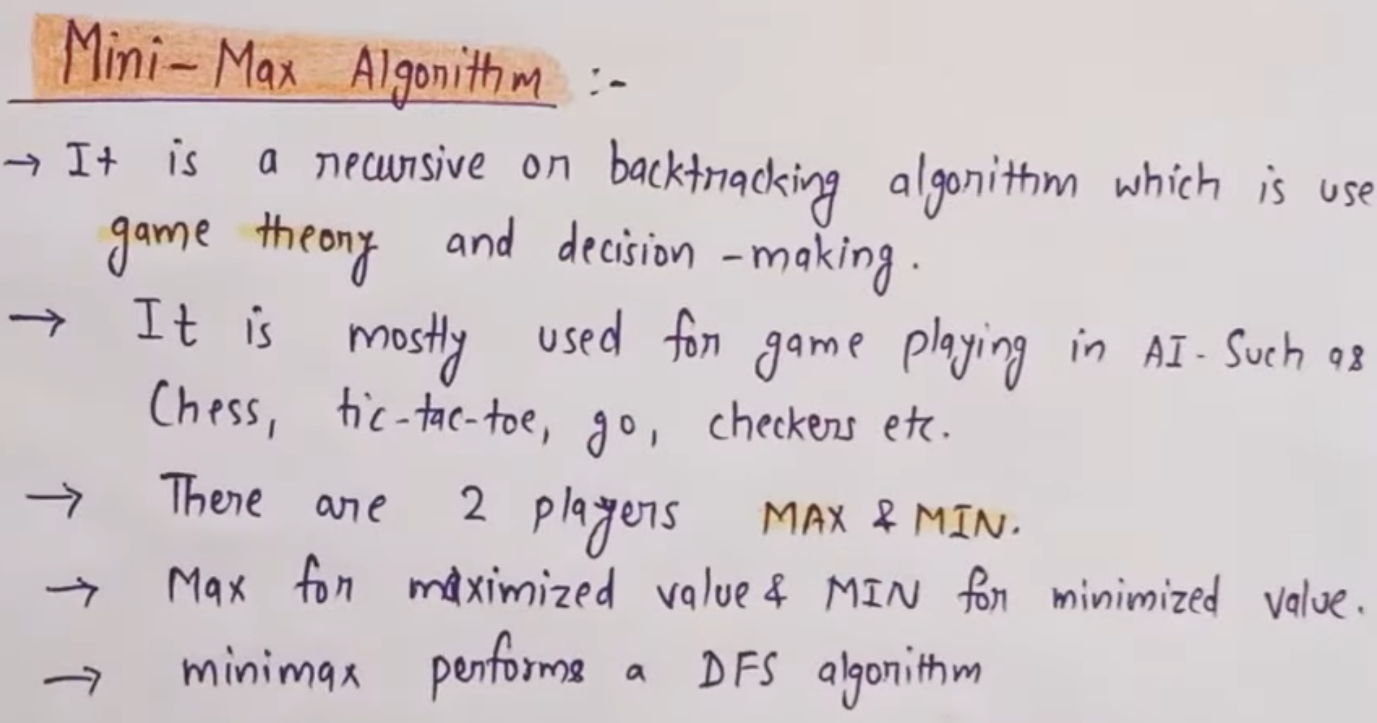 Mini-Max Algorithm :-
→ It is a recursive or backtracking algorithm which is use
game theory and decision-making.
→ It is mostly used for game playing in AI. Such as
Chess, tic-tac-toe, go, checkers etc.
→ There are 2 players MAX & MIN.
→ Max for maximized value & MIN for minimized value.
→ minimax performs a DFS algorithm